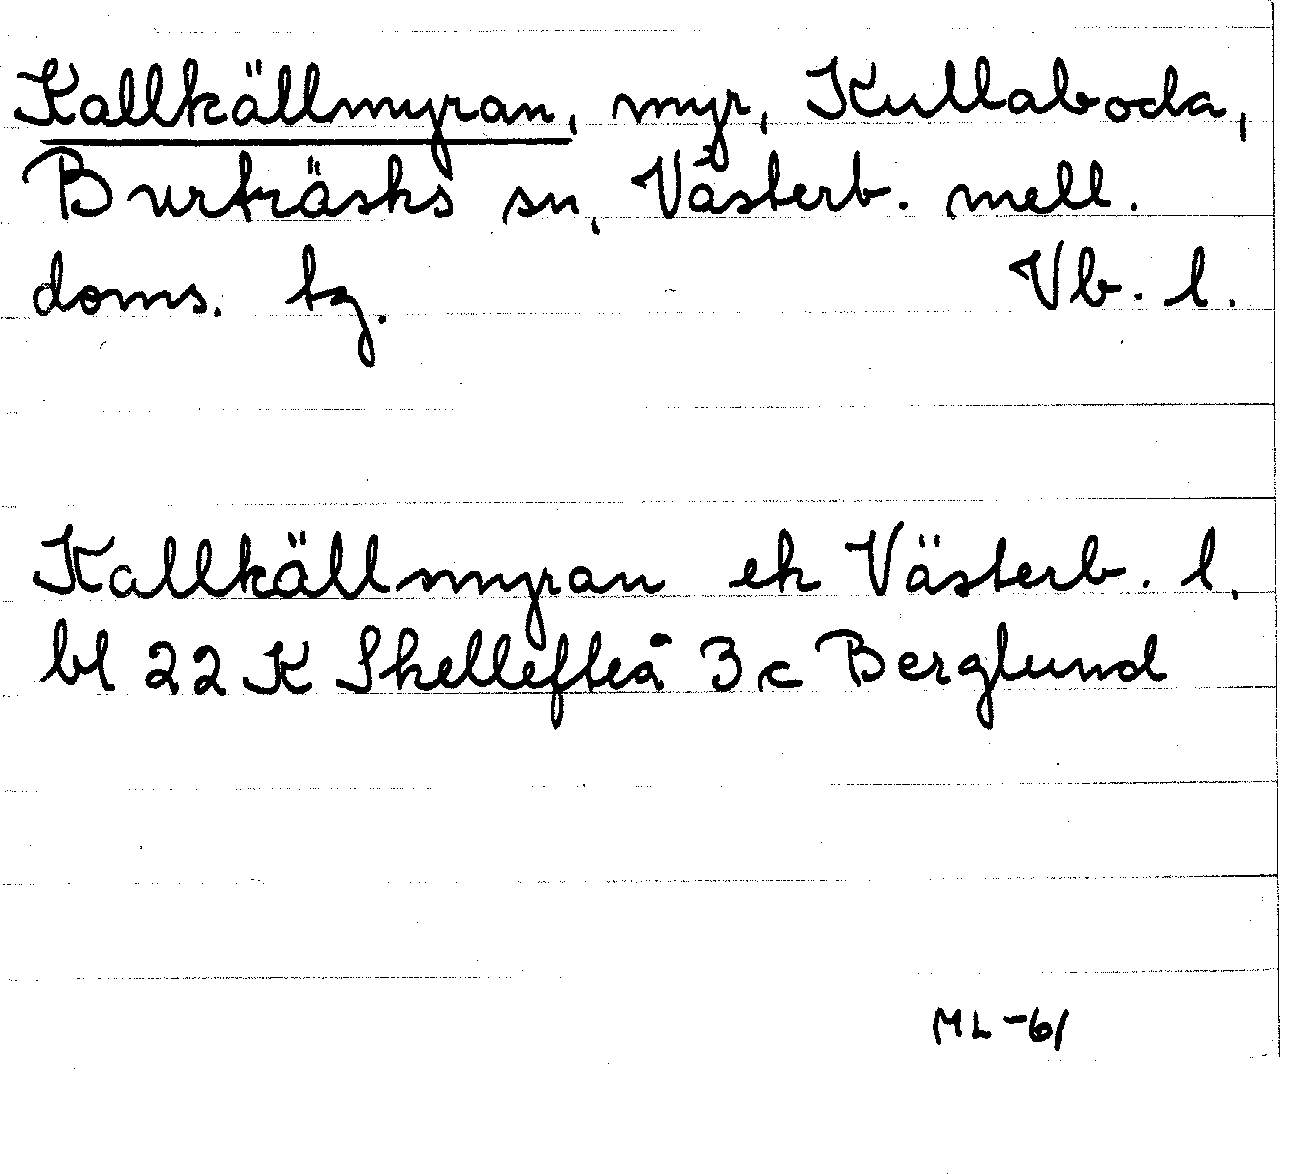 Kallkällmyran, myr, Kullaboda,
Burträsks sn, Västerb. mell.
doms. tg. Vb. l.
Kallkällmyran ek Västerb. l.
bl 22 K Skellefteå 3c Berglund
ML -61